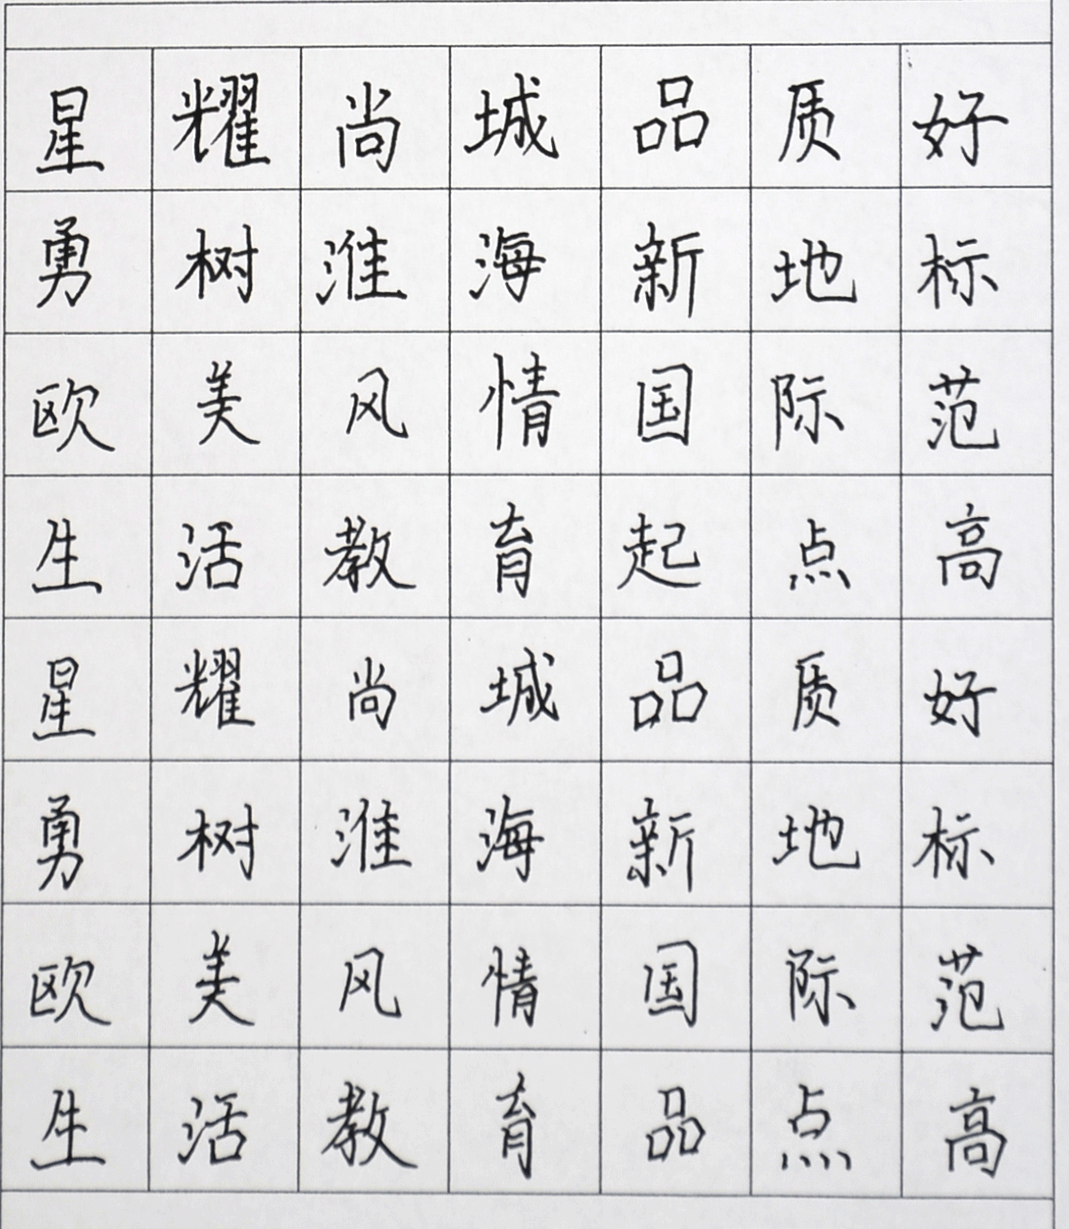 星耀尚城品质好
勇树淮海新地标
欧美风情国际范
生活教育起点高
星耀尚城品质好
勇树淮海新地标
欧美风情国际范
生活教育品点高